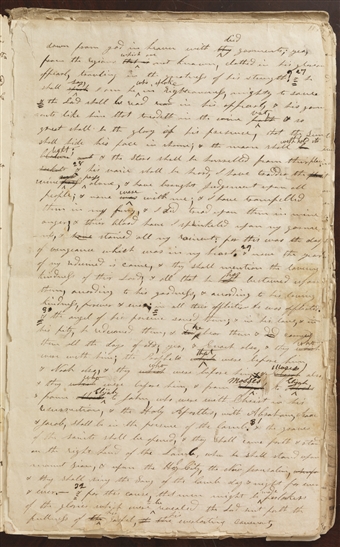 down from god in heaven with died garments yea
from the regions which is not known, clothed in his glorious
apparel, traveling in the greatness of his strength, & he
shall say I am he, who spake in righteousness, mighty to save
& the lord shall be read in his apparel, & his garm
ents like him that treadeth in the wine vat & so
great shall be the glory of his presence, that the sun
shall hide his face in shame; & the moon shall
& the stars shall be hurselled from their
& his voice shall be heard, I have trodden the
press alone, & have brought judgement upon all
people; & none were with me; & I have trampelled
them in my fury, & I did tread upon them in mine
anger; & their blood have I sprinkeled upon my garme
nts, & stained all my raiment; for this was the day
of vengeance which was in my heart & now the year
of my redeemed is come, & they shall mention the loveing
kindness of their Lord, & all that he hath bestowed upon
them, according to his goodness, & according to his loveing
kindness, forever & ever in all their affliction he was afflicted
& the angel of his presence saved them & in his love, & in
his pity he redeemed them, & bear them & carried
them all the days of old, yea & Enoch also, & they
were with him, the Prophets that were before him
& Noah also, & they that were before him; & Moses also
& they were before him, & from Moses to Elijah
& from Elijah to John, who were with Christ in his
resurrection, & the Holy Apostles, with Abraham, Isaac
& Jacob, shall be in the presence of the lamb, & the graves
of the saints shall be opened, & they shall come forth & stan
on the right hand of the Lamb, when he shall stand upon
mount Zion, & upon the Holy City, the New Jerusalem,
& they shall sing the song of the lamb day & night for ever
& ever & for this cause, that men might be partakers
of the glories which were revealed the lord sent forth the
fullness of his gospel, his everlasting covenant,